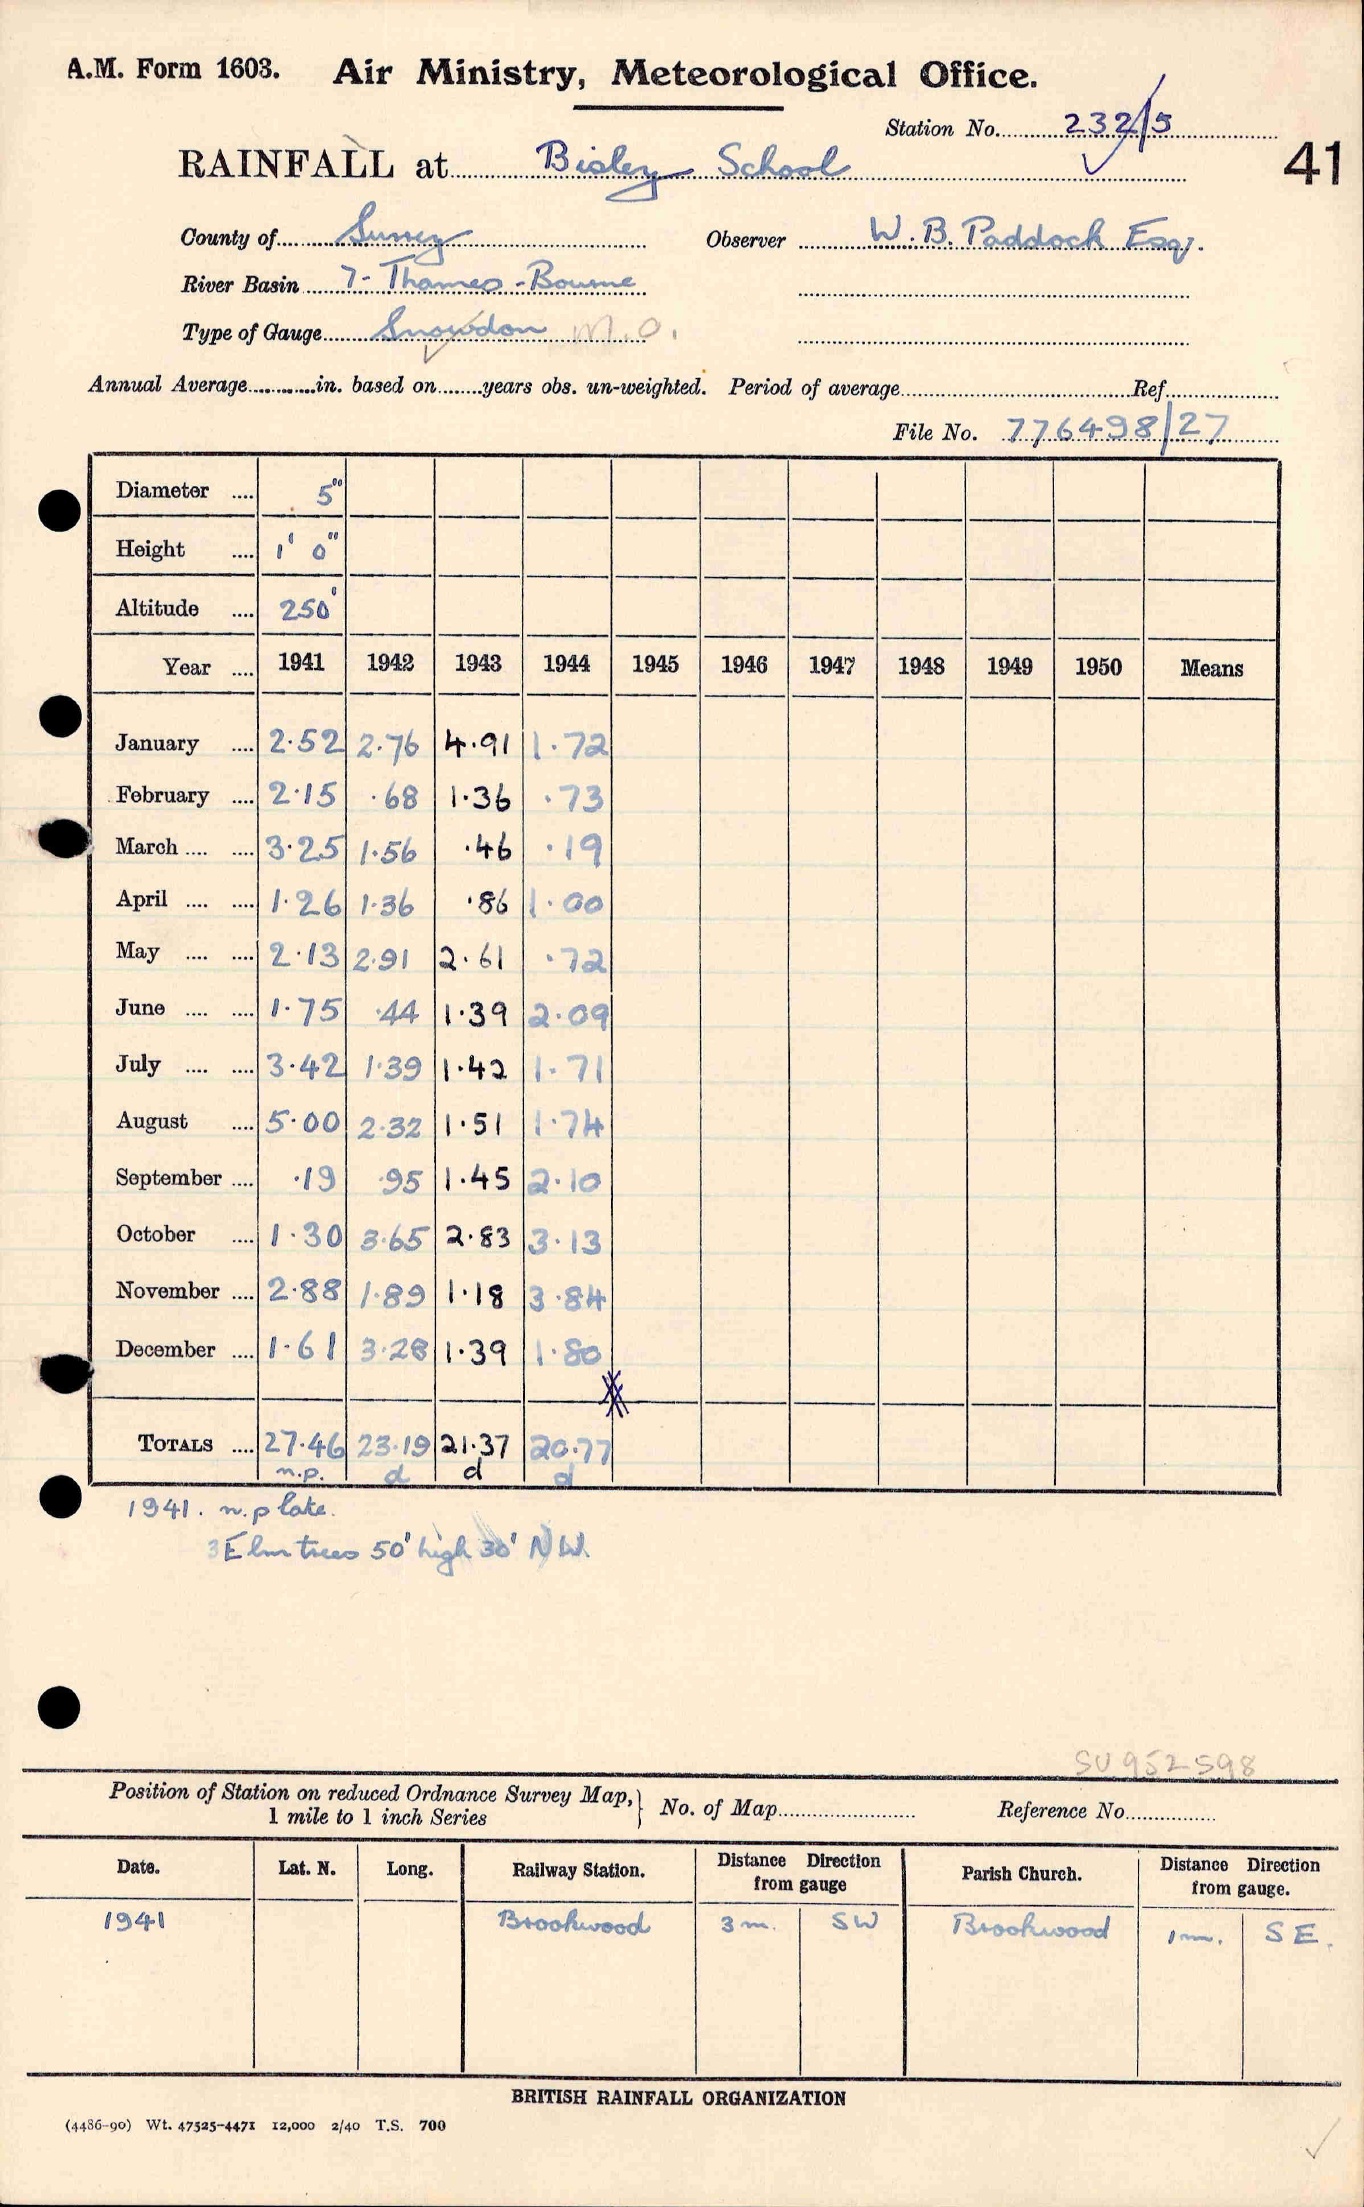 A.M. Form 1603. Air Ministry, Meteorological Office.
Station No. 232/5
41
RAINFALL at Bisley School
County of Surrey Observer W. B. Paddock Esq.
River Basin 7- Thames - Bourne
Type of Gauge Snowdon M.O.
Annual Average in. based on years obs. un-weighted. Period of average Ref
File No. 776498/27
Diameter .... 5"
Height .... 1' 0"
Altitude .... 250'
Year .... 1941 1942 1943 1944 1945 1946 1947 1948 1949 1950 Means
January .... 2·52 2·76 4·91 1·72
February .... 2·15 ·68 1·36 ·73
March .... .... 3·25 1·56 ·46 ·19
April .... .... 1·26 1·36 ·86 1·00
May .... .... 2·13 2·91 2·61 ·72
June .... .... 1·75 ·44 1·39 2·09
July .... .... 3·42 1·39 1·42 1·71
August .... 5·00 2·32 1·51 1·74
September .... ·19 ·95 1·45 2·10
October .... 1·30 3·65 2·83 3·13
November .... 2·88 1·89 1·18 3·84
December .... 1·61 3·28 1·39 1·80
TOTALS .... 27·46 23·19 21·37 20·77
n.p. d d d
1941. n.p late.
3 Elm trees 50' high 30' NW.
SU 952 598
Position of Station on reduced Ordnance Survey Map,} No. of Map Reference No.
1 mile to 1 inch Series
Date. Lat. N. Long. Railway Station. Distance Direction from gauge Parish Church. Distance Direction from gauge.
1941 Brookwood 3 m. SW Brookwood 1 m. S E.
BRITISH RAINFALL ORGANIZATION
(4486-90) Wt. 47525-4471 12,000 2/40 T.S. 700